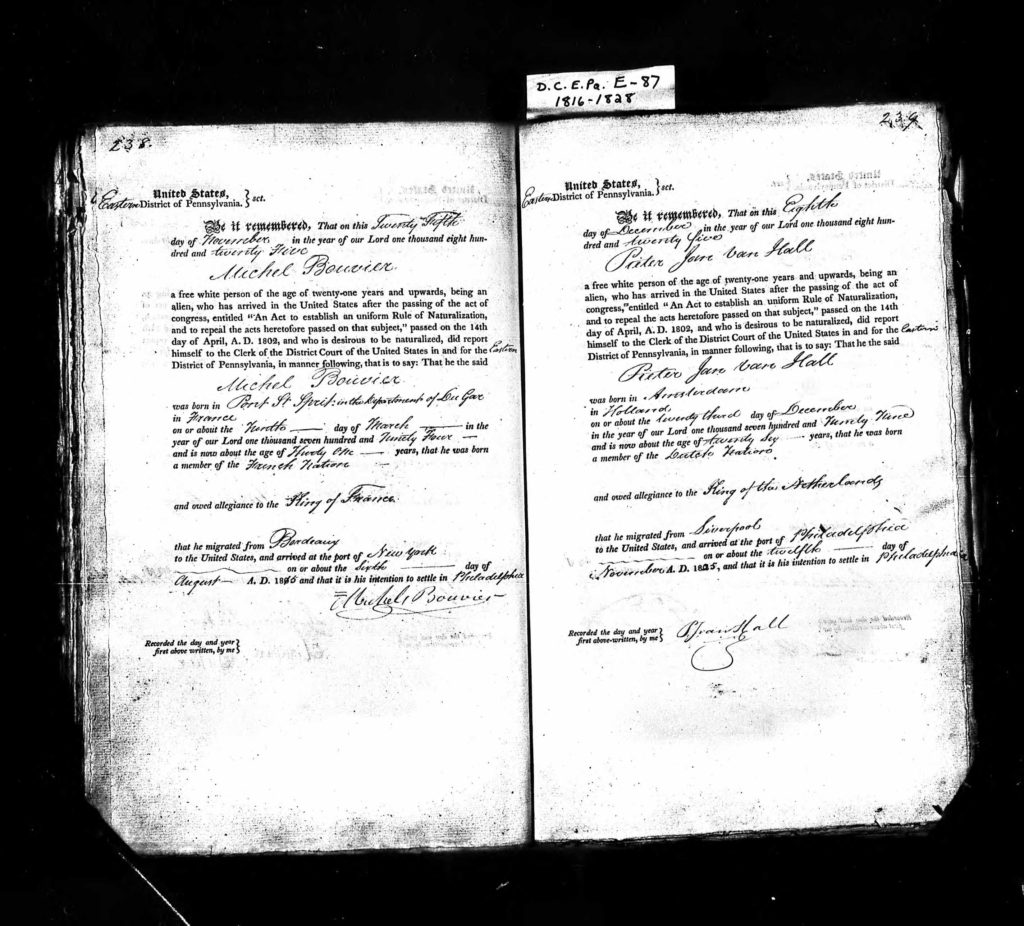 D.C.E.Pa. E-87
1816-1828
238.
United States, } sct.
Eastern District of Pennsylvania.
Be it remembered, That on this Twenty Fifth
day of November in the year of our Lord one thousand eight hun-
dred and twenty Five
Michel Bouvier.
a free white person of the age of twenty-one years and upwards, being an
alien, who has arrived in the United States after the passing of the act of
congress, entitled "An Act to establish an uniform Rule of Naturalization,
and to repeal the acts heretofore passed on that subject," passed on the 14th
day of April, A. D. 1802, and who is desirous to be naturalized, did report
himself to the Clerk of the District Court of the United States in and for the Eastern
District of Pennsylvania, in manner following, that is to say: That he the said
Michel Bouvier
was born in Pont St Sprit: in the Department of Du Gar
in France
on or about the day of March — in the
year of our Lord one thousand seven hundred and Ninety Four —
and is now about the age of — years, that he was born
a member of the French Nation
and owed allegiance to the King of France
that he migrated from Bordeaux
to the United States, and arrived at the port of New York
on or about the day of
August — A. D. 1815 and that it is his intention to settle in Philadelphia
Michel Bouvier
Recorded the day and year }
first above written, by me }
239
United States, } sct.
Eastern District of Pennsylvania.
Be it remembered, That on this Eighth
day of December in the year of our Lord one thousand eight hun-
dred and twenty five
Pieter Jan Van Hall
a free white person of the age of twenty-one years and upwards, being an
alien, who has arrived in the United States after the passing of the act of
congress, "entitled "An Act to establish an uniform Rule of Naturalization,
and to repeal the acts heretofore passed on that subject," passed on the 14th
day of April, A. D. 1802, and who is desirous to be naturalized, did report
himself to the Clerk of the District Court of the United States in and for the Eastern
District of Pennsylvania, in manner following, that is to say: That he the said
Pieter Jan Van Hall
was born in Amsterdam
in Holland
on or about the twenty third day of December
in the year of our Lord one thousand seven hundred and Ninety Nine
and is now about the age of twenty Six — years, that he was born
a member of the Dutch Nation
and owed allegiance to the King of the Netherlands
that he migrated from Liverpool
to the United States, and arrived at the port of Philadelphia
on or about the twelfth — day of
November A. D. 1825, and that it is his intention to settle in Philadelphia
PJvanHall
Recorded the day and year }
first above-written, by me }